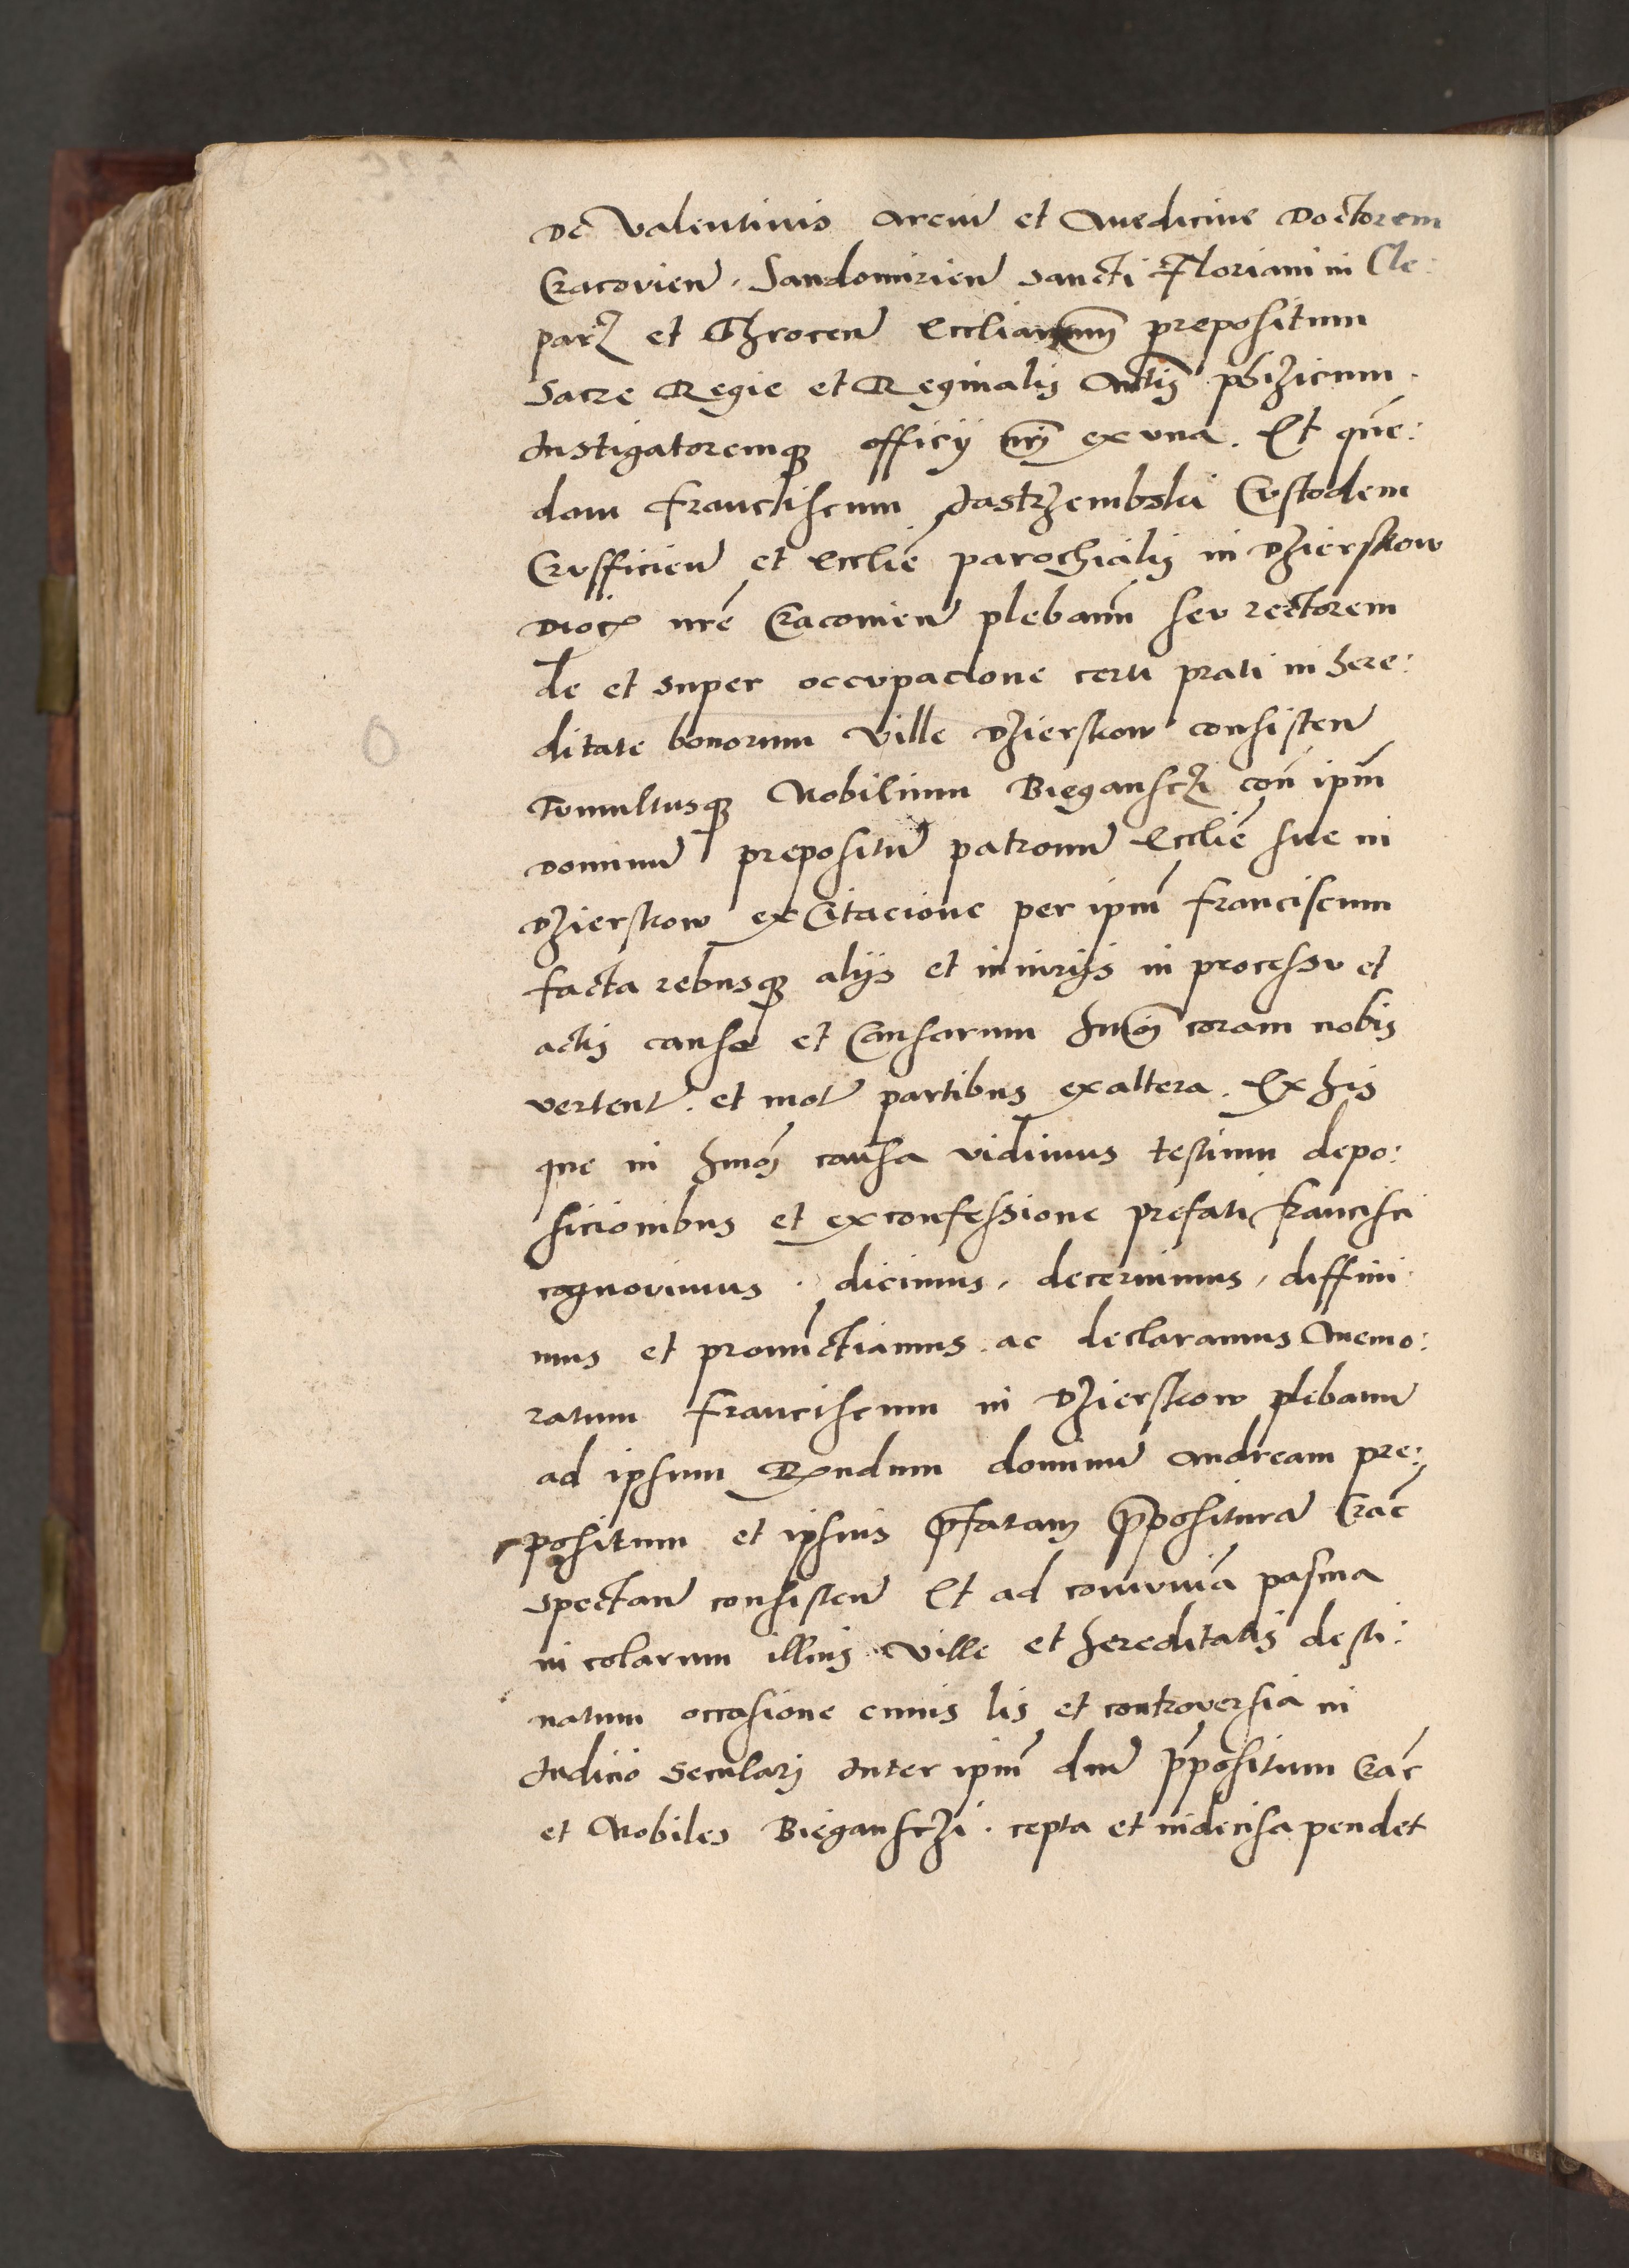 De Valentinis arciū et Medicine Doctorem
Cracovien̄. Sandomirien̄ sancti Floriani in Cle:
parꝫ et Throcen̄ Eccliarum prepositum
Sacre Regie et Reginalis Mtis̄ phiʒicum.
Instigatoremqꝫ officij nrī ex una. Et quē:
dam Franctiscum Jastrʒembski Custodem
Crusficien̄ et Ecclie̅ parochialis in Dʒierskow
Dioc. nre̅ Cracovien̄ plebanū seu rectorem
de et super occupacione certi prati in here:
ditate bonorum Ville Dʒierskow consisten̄
Tumultusqꝫ Nobilium Bieganscʒi con̄ ipm̄
Dominū prepositū patronū Ecclie̅ sue in
Dʒierskow excitacione per ipm̄ Franciscum
facta rebusqꝫ alijs et iniurijs in processu et
actis cause et Causarum hmōi coram nobis
vertent̄. et mot̄ partibus ex altera. Ex his
que in hmōi causa vidimus testium depo:
sicionibus et ex confessione prefati Francisci
cognovimus. dicimus, decernimus, diffini:
mus et pronūctiamus. ac declaramus Memo:
ratum Franciscum in Dʒierskow plebanū
ad ipsum Rn̄dum dominū Andream pre:
positum et ipsius p̄fatam p̄posituram Crac̄
spectan̄ consisten̄ Et ad comunia̅ pascua
incolarum illius Ville et hereditatis desti:
natum occasione cuius lis et controversia in
Judicio Seculari Inter ipm̄ dnū p̄positum Crac̄
et Nobiles Bieganscʒi. cepta et indecisa pendet